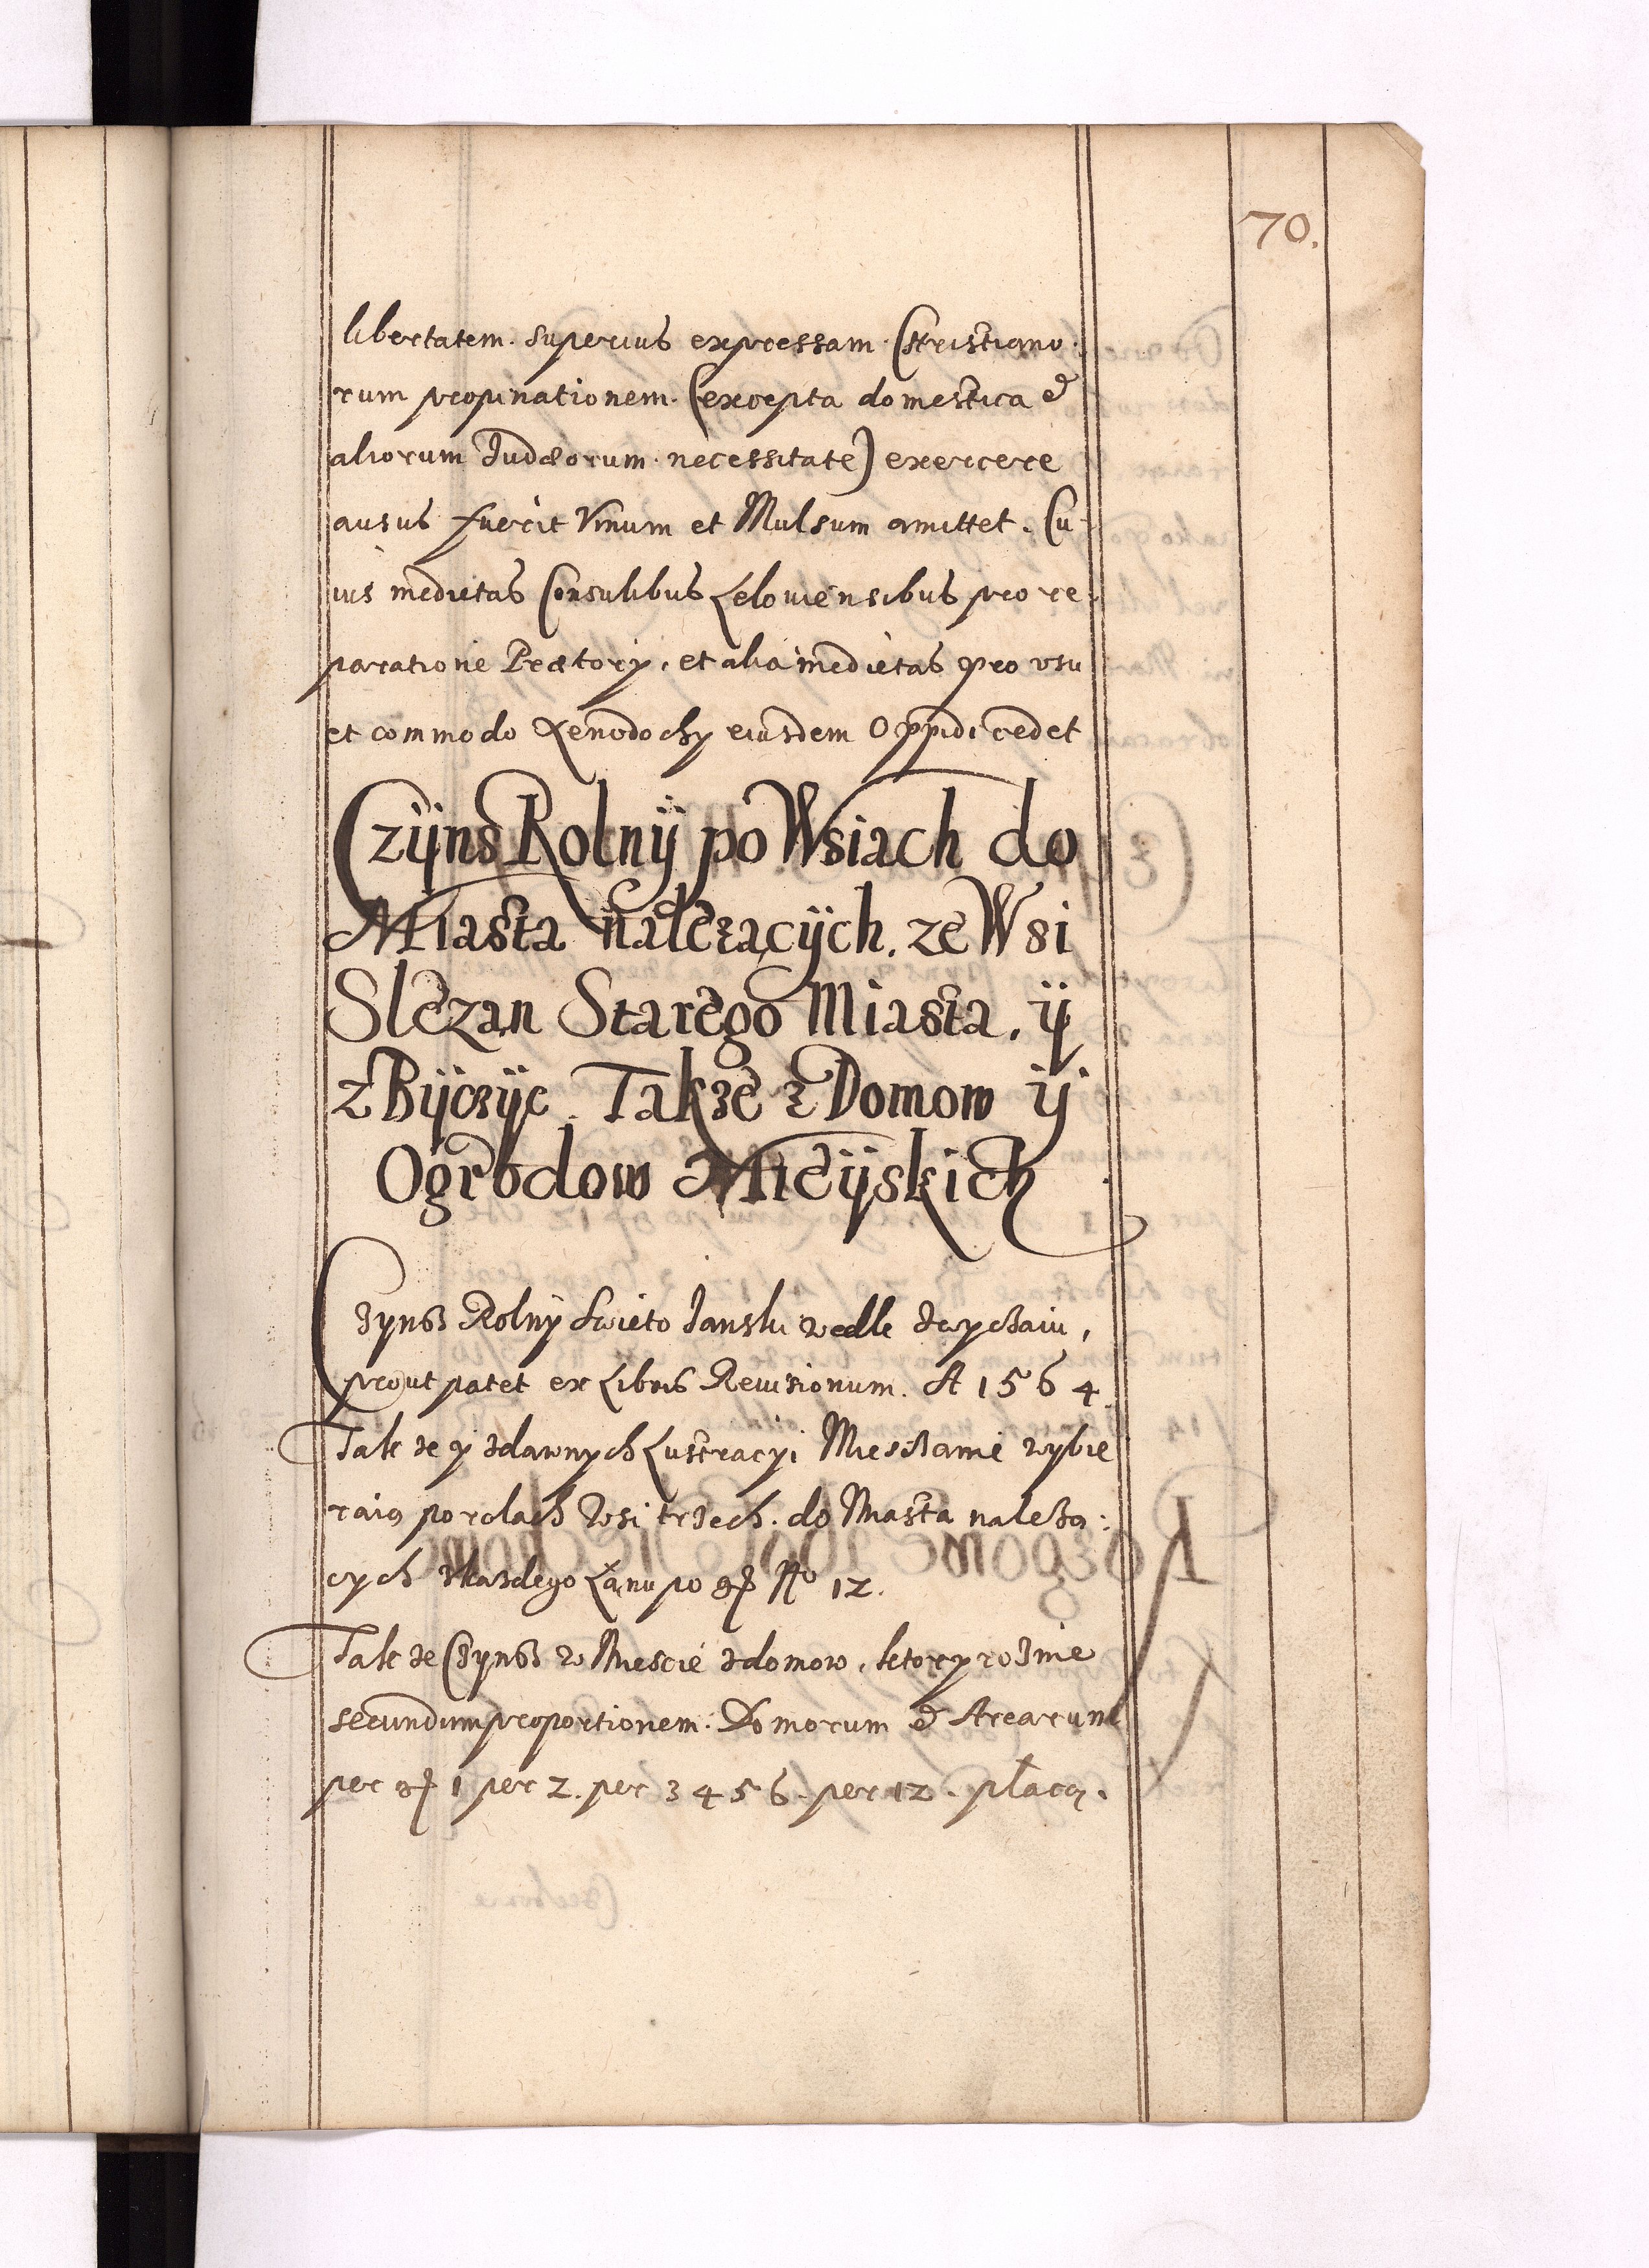 70.
libertatem. superius expressam. Christiano:
rum propinationem. (excepta domestica &
aliorum Iudæorum. necessitate) exercere
ausus fuerit Vinum et Mulsum amittet. Cu-
ius medietas Consulibus Leloviensibus pro re:
paratione Prætorÿ, et alia medietas pro usu
et commodo Xenodochÿ eiusdem Oppidi cedet
Czÿns Rolnÿ po Wsiach do
Miasta nalezącÿch. ze Wsi
Slezan Starego Miasta. ÿ
z Bÿczÿc. Takze z Domow ÿ
Ogrodow Mieÿskich
Czynsz Rolnÿ Swieto Janski wedle zwyczaiu,
prout patet ex Libris Revisionum. A 1564
Tak ze y zdawnych Lustracyi Miesczanie wybie
raią po rolach Wsi trzech. do Miasta należą:
cych zkazdego Łanu po g No 12.
Tak ze Czynsz w Miescie zdomow, ktory roznie
secundum proportionem. Domorum & Arearum
per g 1 per 2. per 3 4 5 6. per 12. płacą.